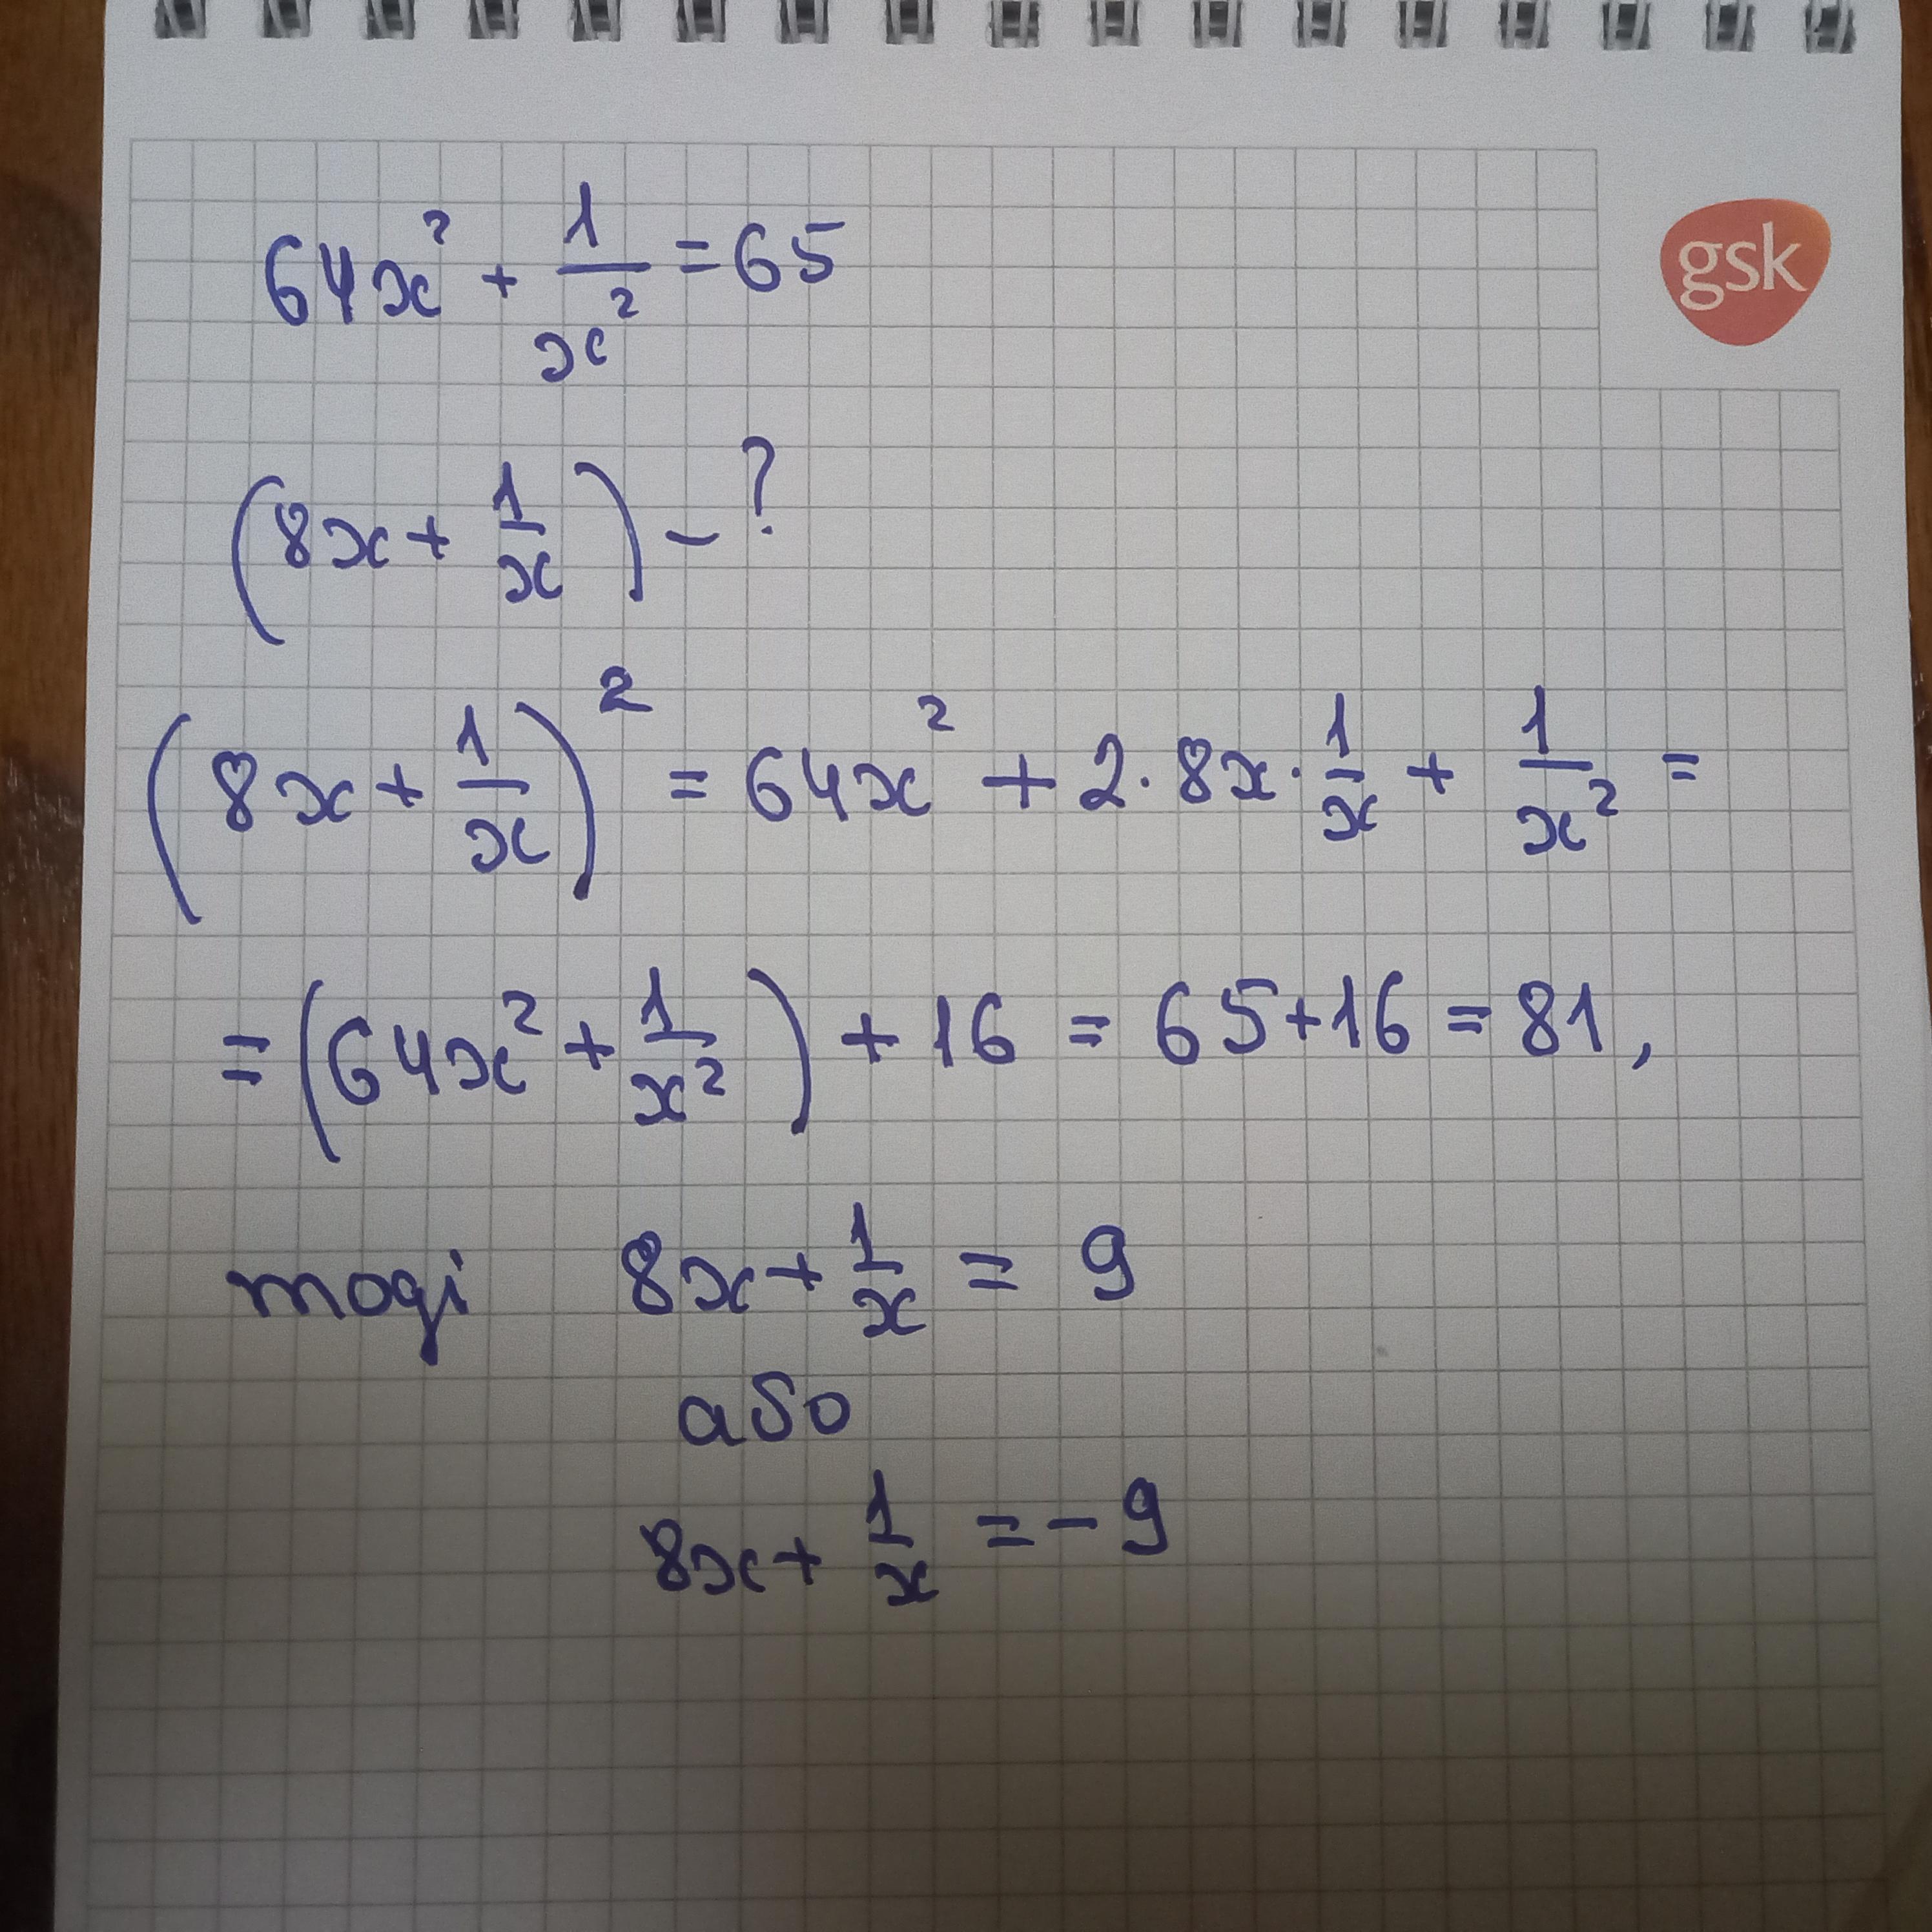 gsk
64x² + 1/x² = 65
(8x + 1/x) - ?
(8x + 1/x)² = 64x² + 2·8x·1/x + 1/x² =
= (64x² + 1/x²) + 16 = 65+16 = 81,
тоді 8x + 1/x = 9
або
8x + 1/x = - 9